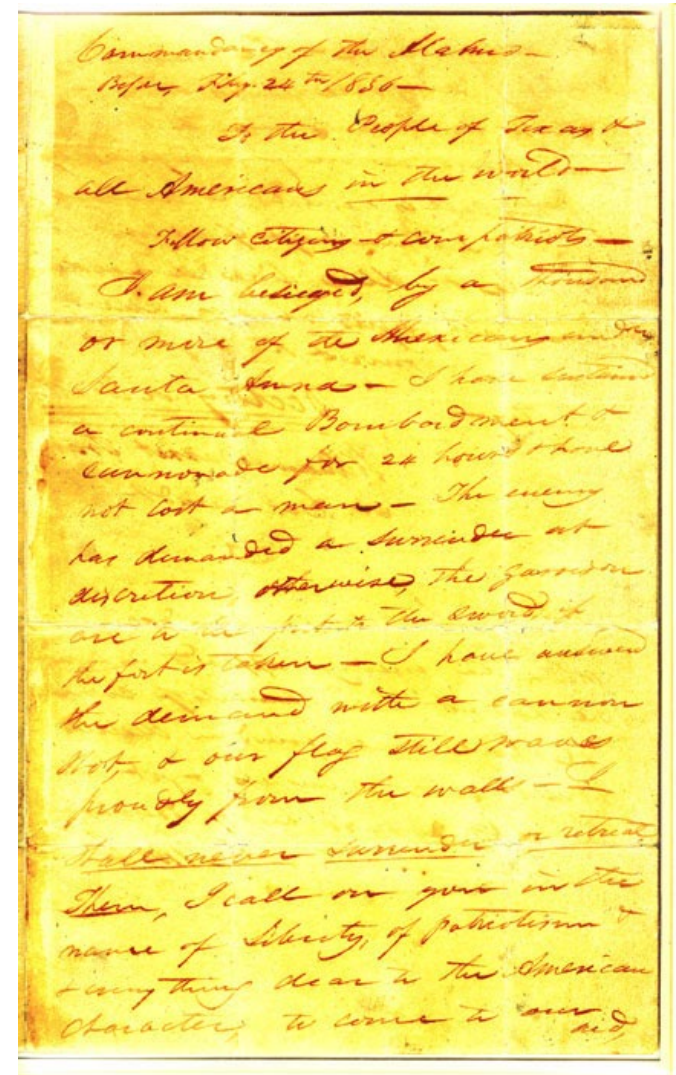 Commandancy of the Alamo—
Bejar, Feby. 24th 1836—
To the People of Texas &
all Americans in the world—
Fellow citizens & compatriots—
I am besieged, by a thousand
or more of the Mexicans under
Santa Anna — I have sustained
a continual Bombardment &
cannonade for 24 hours & have
not lost a man — The enemy
has demanded a surrender at
discretion, otherwise, the garrison
are to be put to the sword, if
the fort is taken — I have answered
the demand with a cannon
shot, & our flag still waves
proudly from the walls — I
shall never surrender or retreat
Then, I call on you in the
name of Liberty, of patriotism &
& every thing dear to the American
character, to come to our aid,